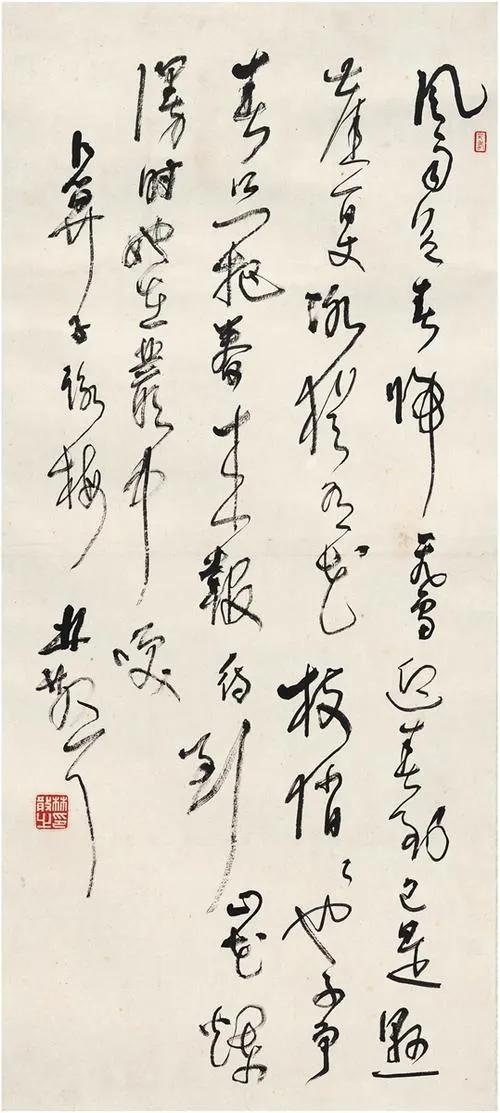 風雨送春歸飛雪迎春到已是懸
崖百丈冰猶有花枝俏〻也不爭
春只把春來報待到山花爛
漫时她在叢中咲
卜算子詠梅 林散耳
林散之印